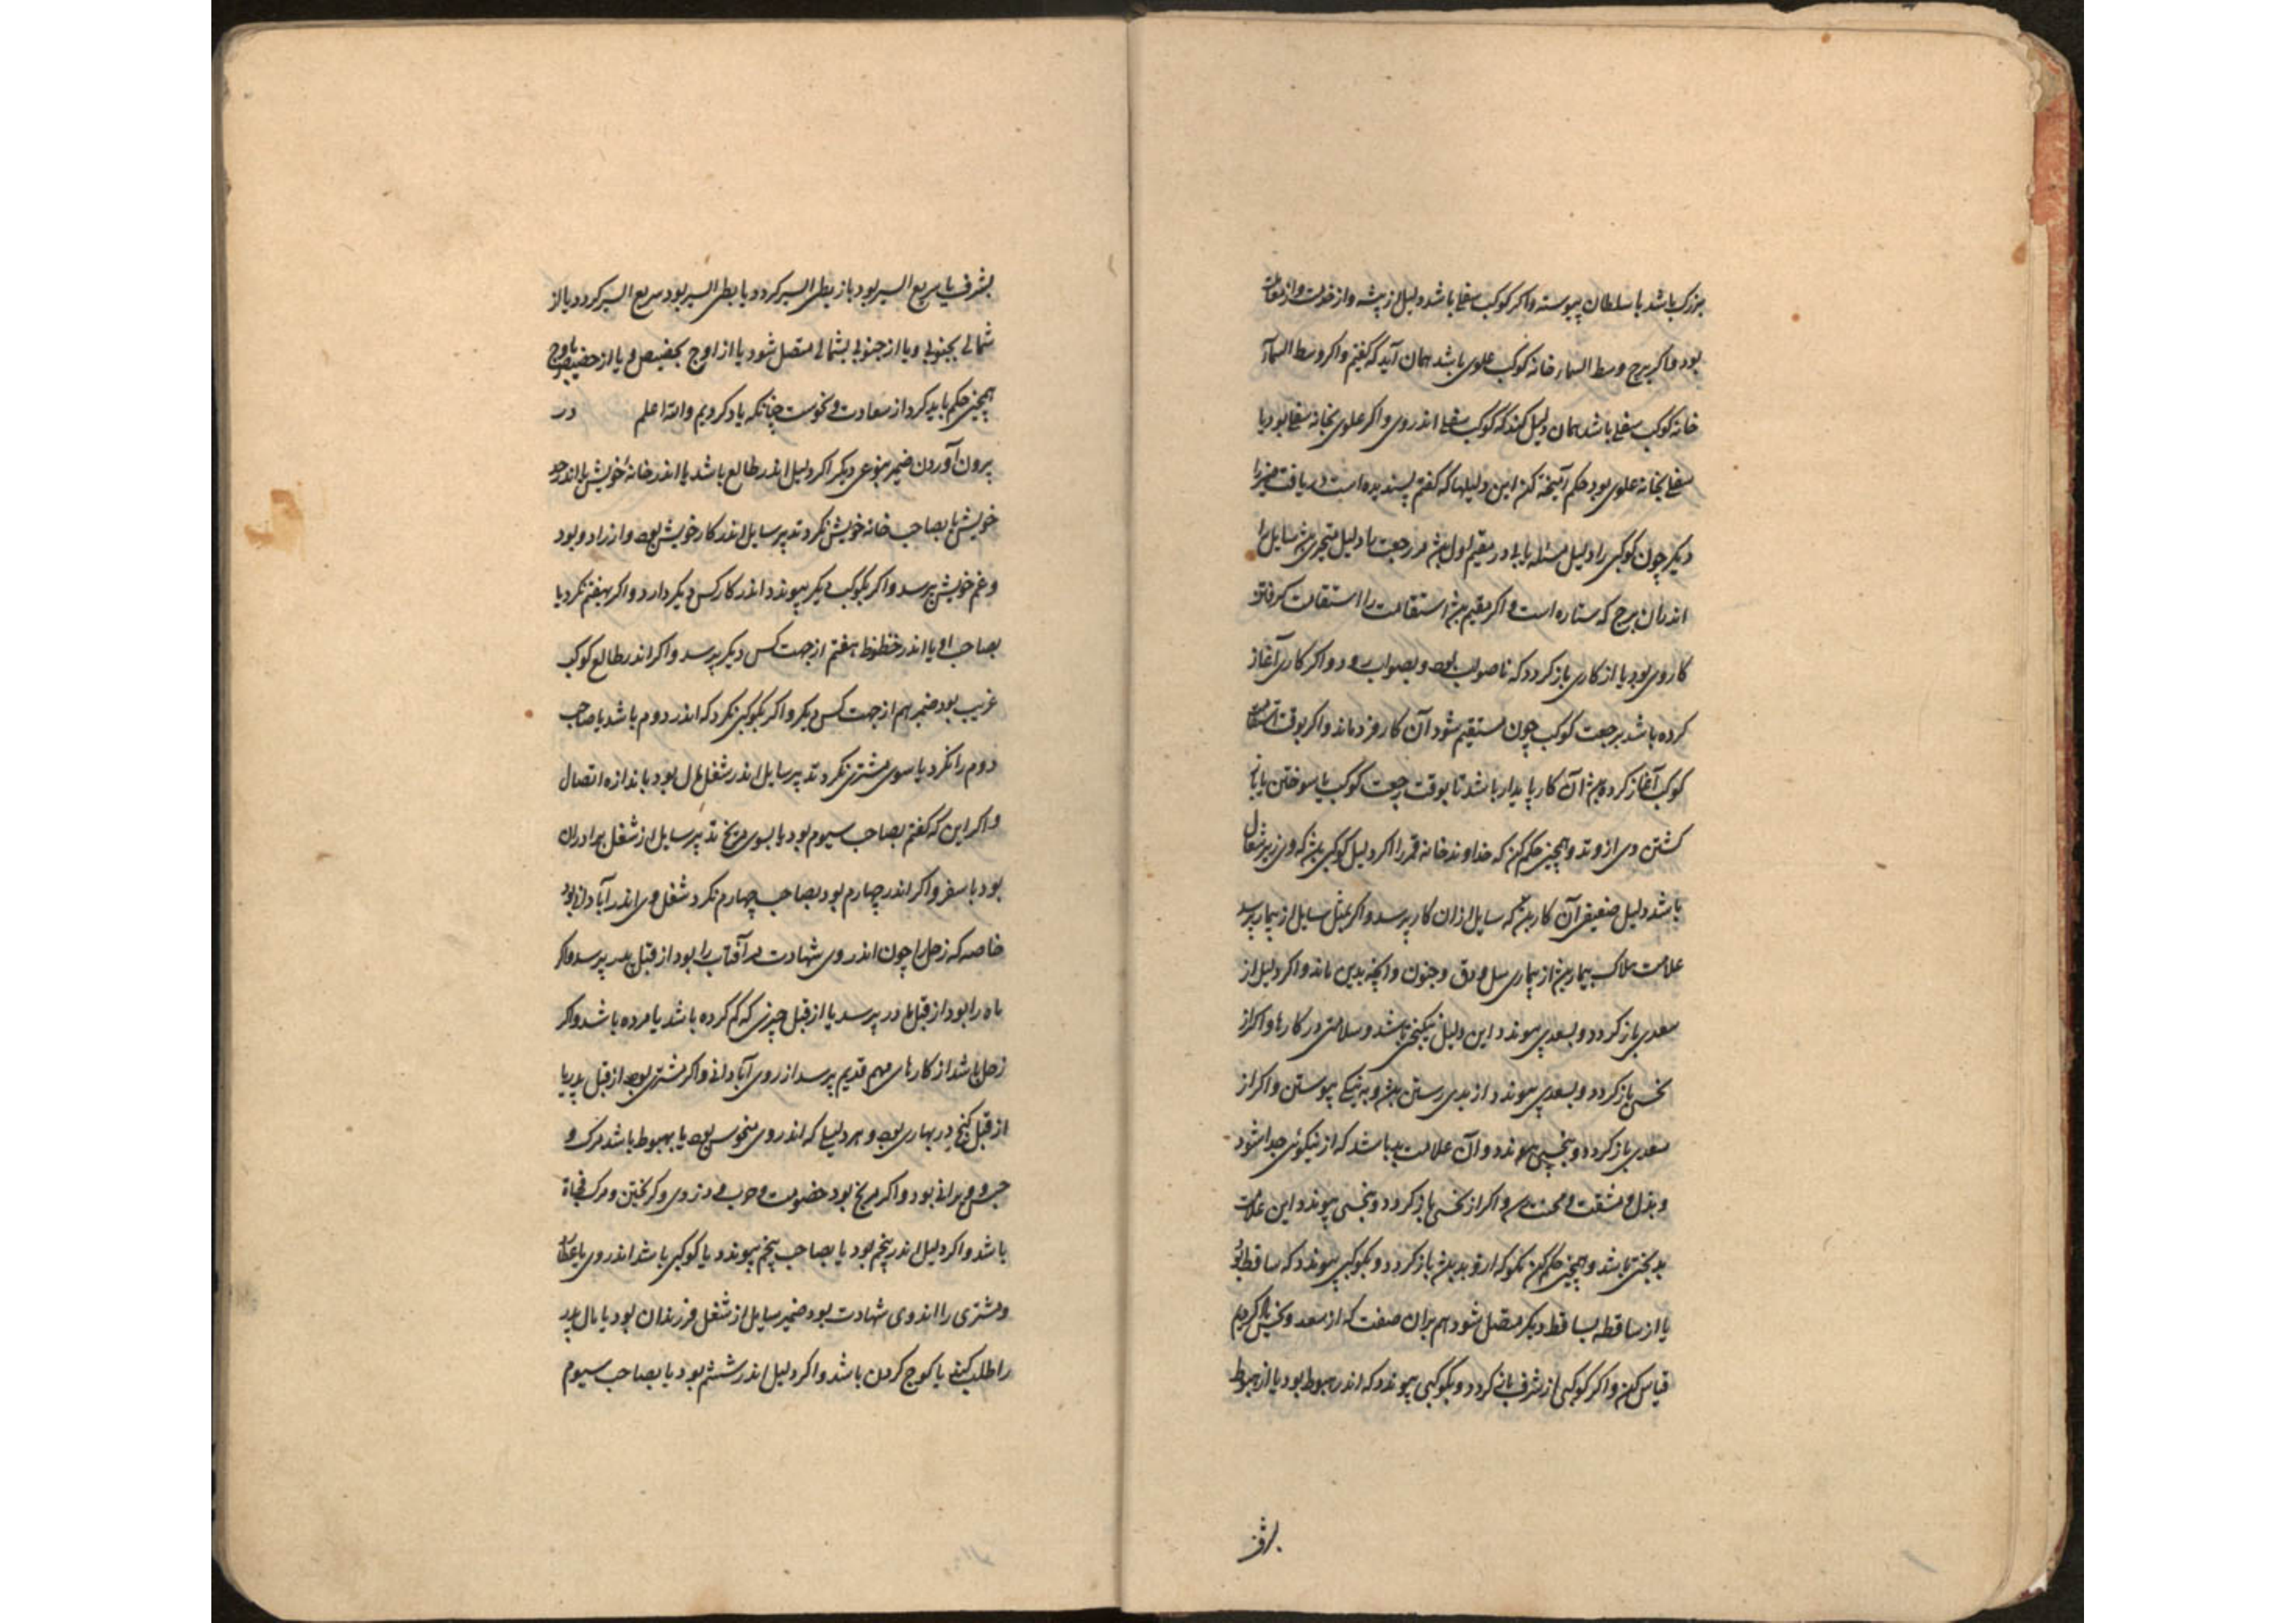 بزرگ باشد با سلطان پیوسته واکر کوکب سفلے باشد دلیل از پیشه واز
بود واکر برج وسط السمار خانه کوکب علوی باشد همان آید که گفتم واکر وسط السمآ
خانه کوکب سفلے باشد همان دلیل کند که کوکب سفلے اندروی واکر علوی بخانه سفلے بود یا
سفلے بخانه علوی بود حکم آمیخته کن این دلیلها که گفتم پسندیده است دریافت ضمیر را
دیکر چون کوکبی را دلیل مسئله یابے در مقیم اول رجعت
اندران برج که ستاره است واکر مقیم استقامت را
کاروی بود یا از کاری باز کردد که ناصواب بود وبصواب رود واکر کاری آغاز
کرده باشد برجعت کوکب چون مستقیم شود آن کار فرو ماند واکر بوقت استقامت
کوکب آغاز کرده آن کار پایدار باشد تا بوقت رجعت کوکب یا سوختن یا
کشتن وی از وتد وهمچنین حکم کن که خداوند خانه قمر را اکر دلیل کوکبی که وی زیر شعاع
باشد دلیل ضعیفی آن کار که سایل ازان کار پرسد واکر سایل از بیمار پرسد
علامت هلاک بیمار از بیماری سل و دق وجنون وانچه بدین ماند واکر دلیل از
سعدی باز کردد وبسعدی پیوندد این دلیل نیکبختی باشد وسلامتی در کارها واکر از
نحسی باز کردد وبسعدی پیوندد از بدی رستن وبه نیکے پیوستن واکر از
سعدی باز کردد وبنحسی پیوندد وآن علامت بد باشد که از نیکوئی جدا شود
ومشقت ومحنت واکر از نحسی باز کردد وبنحسی پیوندد این علامت
بدبختی باشد وهمچنین حکم کن باز کردد وبکوکبی پیوندد که ساقط بود
یا از ساقطه بساقط دیکر متصل شود هم بران صفت که از سعد ونحس یاد کردیم
قیاس کن واکر کوکبی از شرف باز کردد وبکوکبی پیوندد که اندر هبوط بود یا از هبوط
بشرف
بشرف یا سریع السیر بود باز بطی السیر کردد یا بطی السیر بود سریع السیر کردد یا از
شمالے بجنوبے ویا از جنوبے بشمالے متصل شود یا از اوج بحضیض ویا از حضیض باوج
همچنین حکم باید کرد از سعادت ونحوست چنانکه یاد کردیم والله اعلم در
برون آوردن ضمیر بنوعی دیکر اکر دلیل اندر طالع باشد یا اندر خانه خویش یا اندر حد
خویش یا بصاحب خانه خویش نکرد تدبیر سایل اندر کار خویش بود واز راد وبود
وغم خویش پرسد واکر بکوکب دیکر پیوندد اندر کار کس دیکر دارد واکر بهفتم نکرد یا
بصاحب او یا اندر حظوظ هفتم از جهت کس دیکر پرسد واکر اندر طالع کوکب
غریب بود ضمیر هم از جهت کس دیکر واکر بکوکبی نکرد که اندر دوم باشد یا صاحب
دوم را نکرد یا سوی مشتری نکرد تدبیر سایل اندر شغل مال بود باندازه اتصال
واکر این که گفتم بصاحب سیوم بود یا بسوی مریخ تدبیر سایل از شغل برادران
بود یا سفر واکر اندر چهارم بود بصاحب چهارم نکرد شغل وی اندر آبادانے بود
خاصه که زحل را چون اندروی شهادت مر آفتاب را بود از قبل پدر پرسد واکر
ماه را بود از قبل مادر پرسد یا از قبل چیزی که کم کرده باشد یا مرده باشد واکر
زحل باشد از کارهای مهم قدیم پرسد از روی آبادانے واکر مشتری بود از قبل پدر یا
از قبل کنج بود وهر دلیلے که اندر وی منحوس بود یا بهبوط باشد مرک و
حبس و بود واکر مریخ بود خصومت وحرب ودزدی وکریختن ومرک فجاة
باشد واکر دلیل اندر پنجم بود یا بصاحب پنجم پیوندد یا کوکبی باشد اندروی یا
ومشتری را اندروی شهادت بود ضمیر سایل از شغل فرزندان بود یا مال پدر
را طلب کند یا کوچ کردن باشد واکر دلیل اندر ششم بود یا بصاحب سیوم